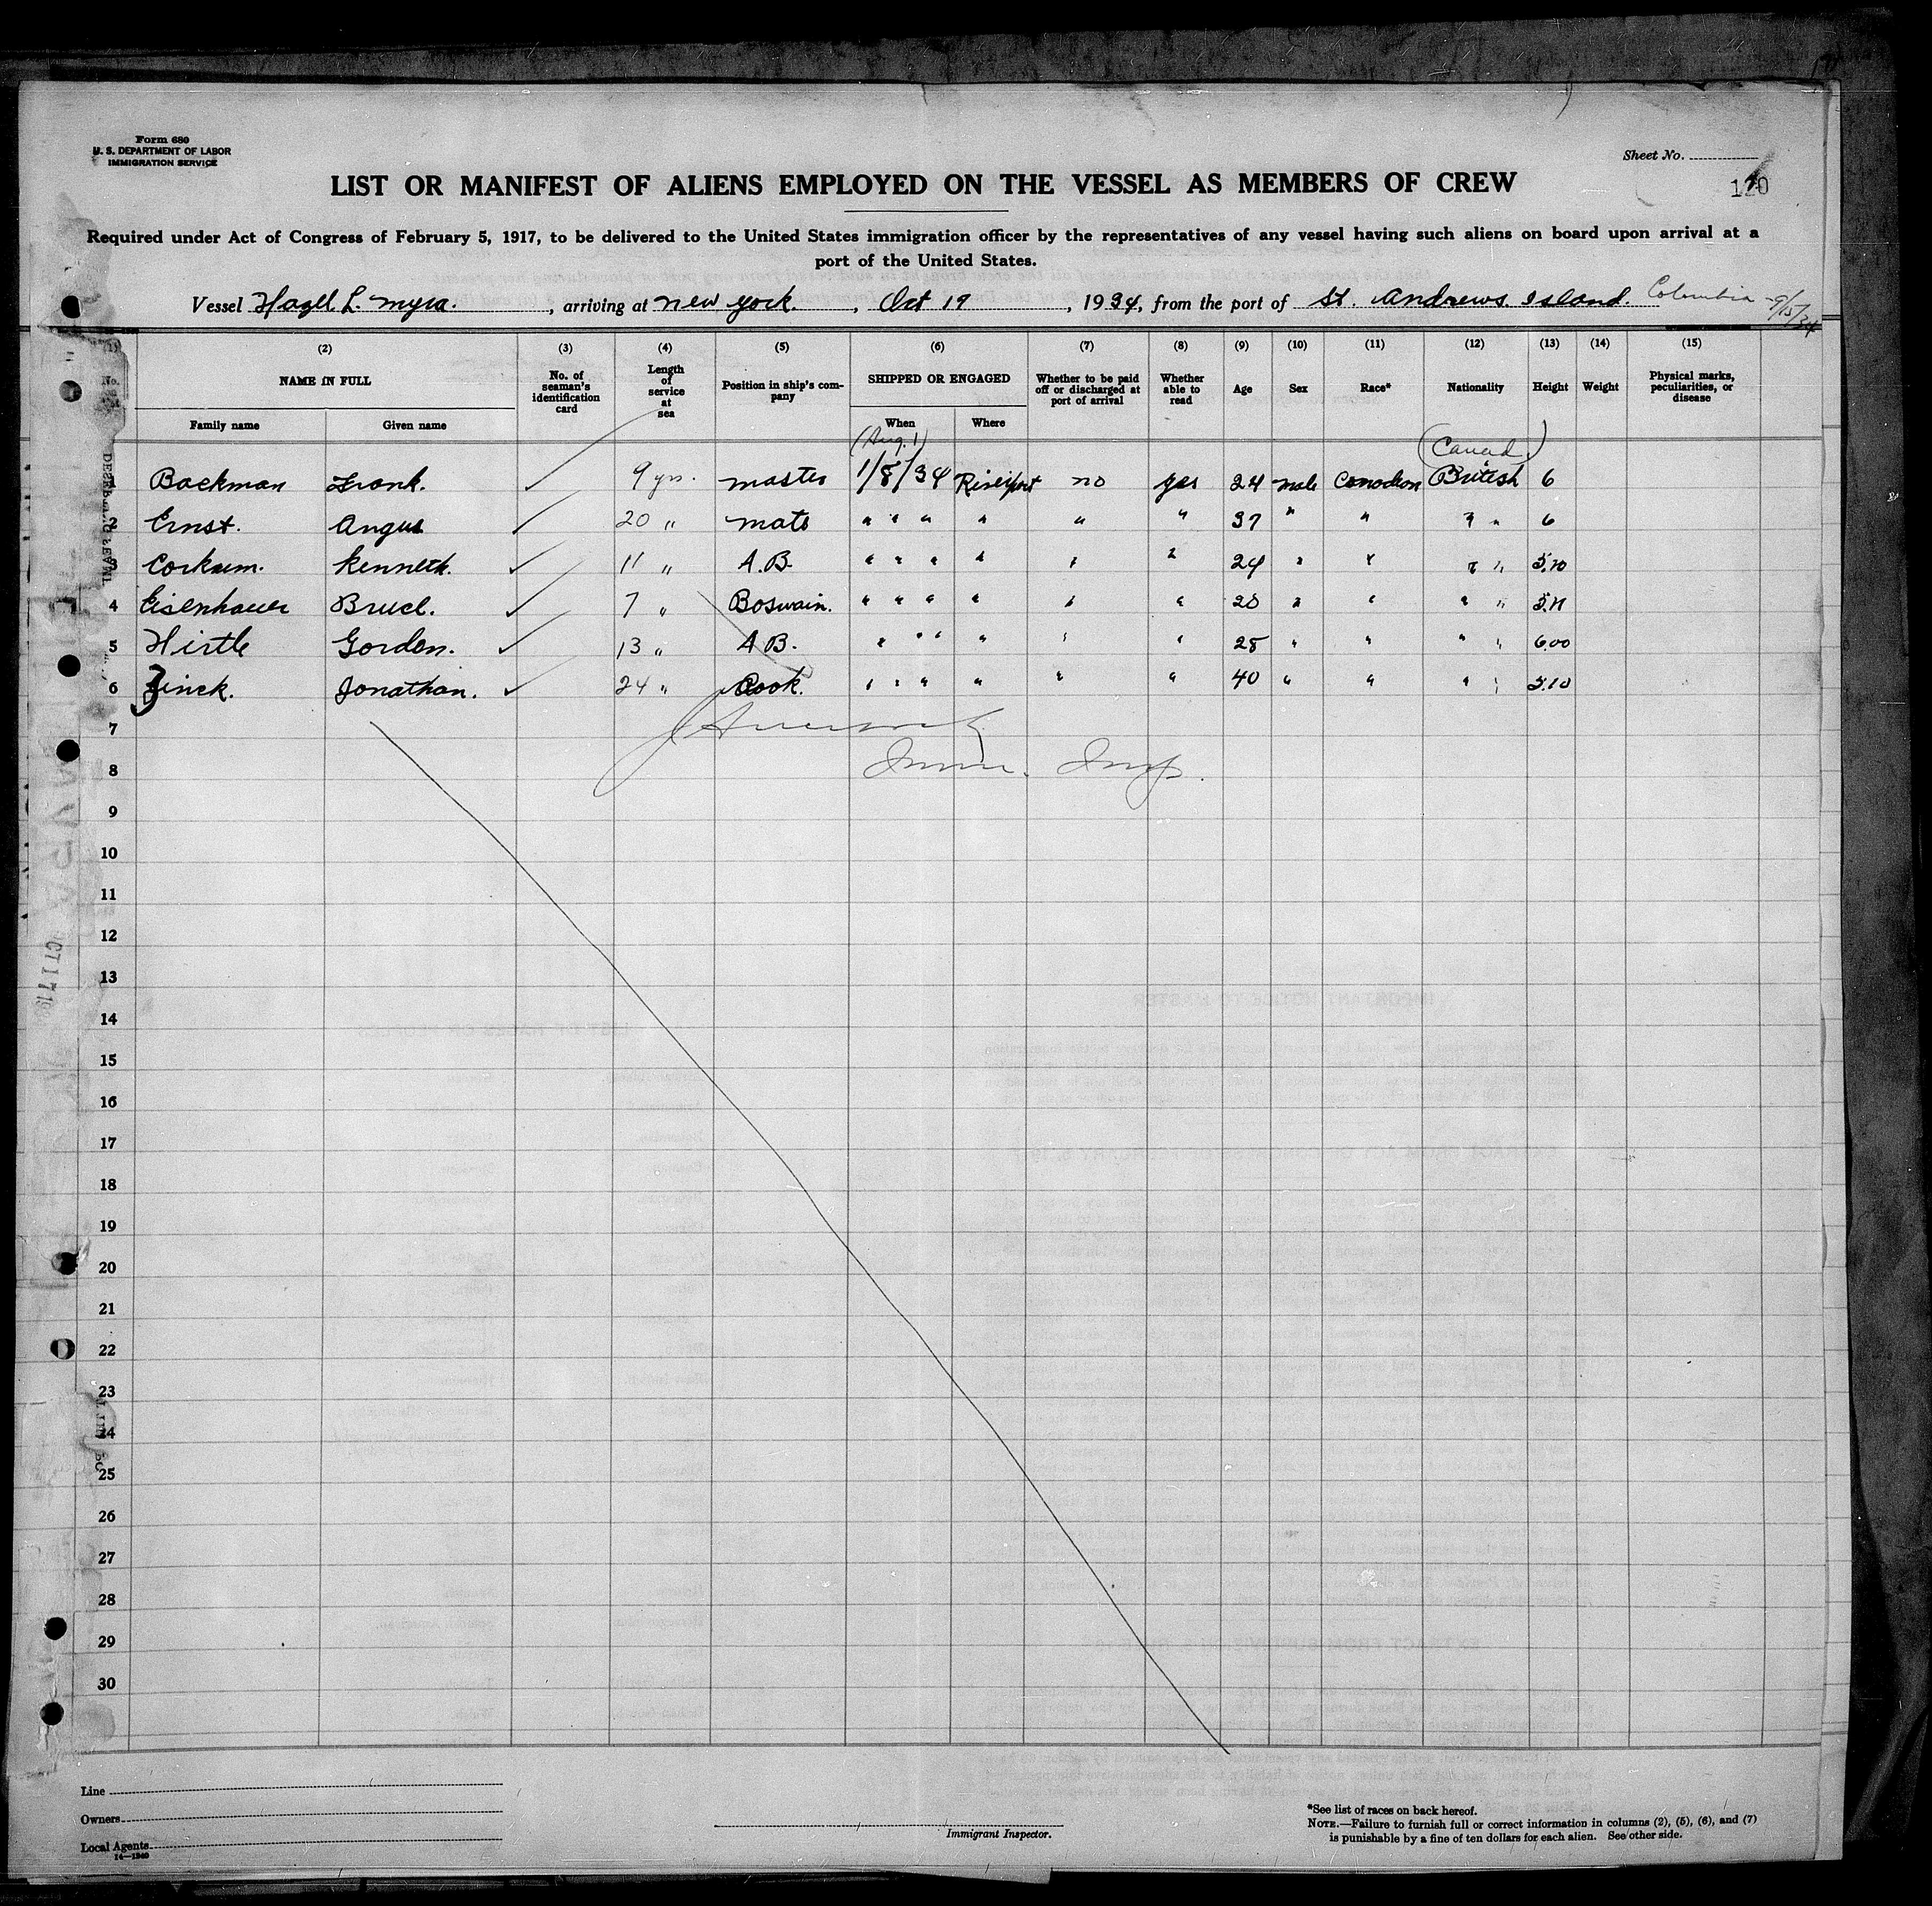 Form 680
U. S. DEPARTMENT OF LABOR
IMMIGRATION SERVICE
Sheet No.
120
LIST OR MANIFEST OF ALIENS EMPLOYED ON THE VESSEL AS MEMBERS OF CREW
Required under Act of Congress of February 5, 1917, to be delivered to the United States immigration officer by the representatives of any vessel having such aliens on board upon arrival at a
port of the United States.
Vessel Hazel L. Myra. , arriving at New York. , Oct 17 , 1934, from the port of St. Andrews Island. Colombia - 9/15/34
(1) (2) (3) (4) (5) (6) (7) (8) (9) (10) (11) (12) (13) (14) (15)
NAME IN FULL No. of seaman's identification card Length of service at sea Position in ship's company SHIPPED OR ENGAGED Whether to be paid off or discharged at port of arrival Whether able to read Age Sex Race* Nationality Height Weight Physical marks, peculiarities, or disease
Family name Given name When Where
(Aug. 1) (Canad.)
1 Backman Frank. 9 yrs. master 1/8/34 Riverport no yes 24 male Canadian British 6
2 Ernst. Angus 20 " mate " " " " " " 37 " " " " 6
3 Corkum. Kenneth. 11 " A.B. " " " " " " 24 " " " " 5.10
4 Eisenhauer Bruce. 7 " Boswain. " " " " " " 28 " " " " 5.11
5 Hirtle Gordon. 13 " A.B. " " " " " " 28 " " " " 6.00
6 Zinck. Jonathan. 24 " Cook. " " " " " " 40 " " " " 5.10
7
8 Imm. Insp.
9
10
11
12
13
14
15
16
17
18
19
20
21
22
23
24
25
26
27
28
29
30
Line
Owners
Local Agents
14—1240
Immigrant Inspector.
*See list of races on back hereof.
NOTE.—Failure to furnish full or correct information in columns (2), (5), (6), and (7)
is punishable by a fine of ten dollars for each alien. See other side.